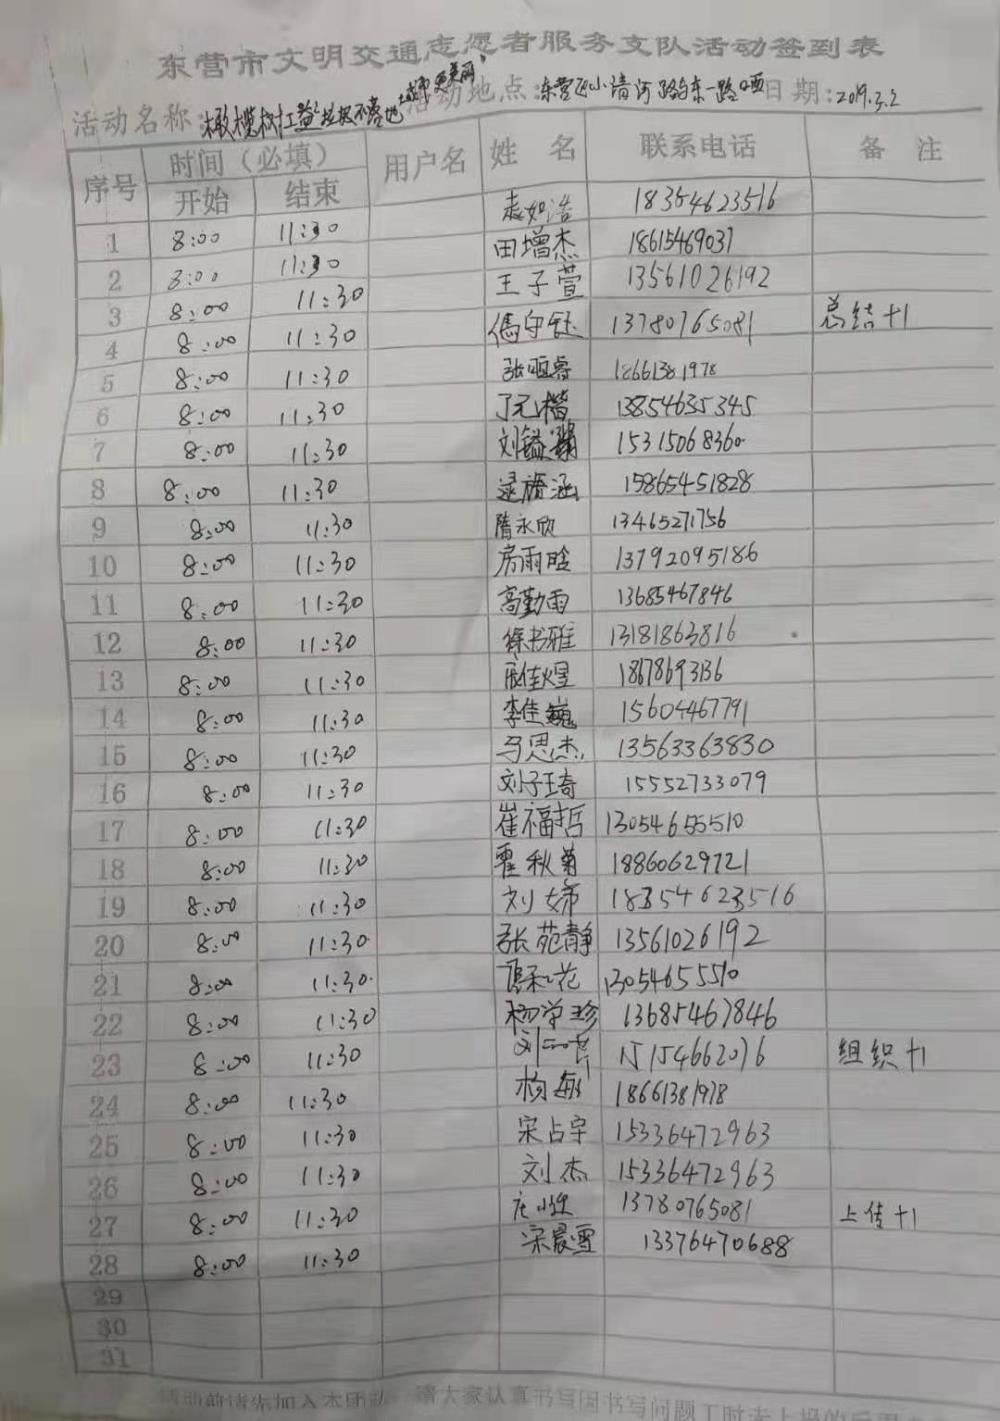 东营市文明交通志愿者服务支队活动签到表
活动名称: 橄榄树红益"垃圾不落地 城市更美丽" 活动地点: 东营区小清河路与东一路口西 日期: 2019.3.2
序号 时间（必填） 用户名 姓 名 联系电话 备 注
开始 结束
1 8:00 11:30 袁如浩 18354623516
2 8:00 11:30 田增杰 18615469037
3 8:00 11:30 王子萱 13561026192
4 8:00 11:30 馮守钰 13780765081 总结+1
5 8:00 11:30 张恒睿 18661381978
6 8:00 11:30 丁元楷 13854635345
7 8:00 11:30 刘镒 15315068360
8 8:00 11:30 涵 15865451828
9 8:00 11:30 隋永欣 13465271756
10 8:00 11:30 房雨晗 13792095186
11 8:00 11:30 高勤雨 13685467846
12 8:00 11:30 徐书雅 13181863816
13 8:00 11:30 佳煜 18678693136
14 8:00 11:30 李佳巍 15604467791
15 8:00 11:30 马思杰 13563363830
16 8:00 11:30 刘子琦 15552733079
17 8:00 11:30 崔福哲 13054655510
18 8:00 11:30 霍秋菊 18860629721
19 8:00 11:30 刘娣 18354623516
20 8:00 11:30 张苑静 13561026192
21 8:00 11:30 花 13054655510
22 8:00 11:30 杨学珍 13685467846
23 8:00 11:30 刘 15154662076 组织+1
24 8:00 11:30 杨敏 18661381978
25 8:00 11:30 宋占宇 15336472963
26 8:00 11:30 刘杰 15336472963
27 8:00 11:30 庄 13780765081 上传+1
28 8:00 11:30 宋晨雪 13376470688
29
30
31
活动前请先加入本团队 请大家认真书写因书写问题工时未上报的